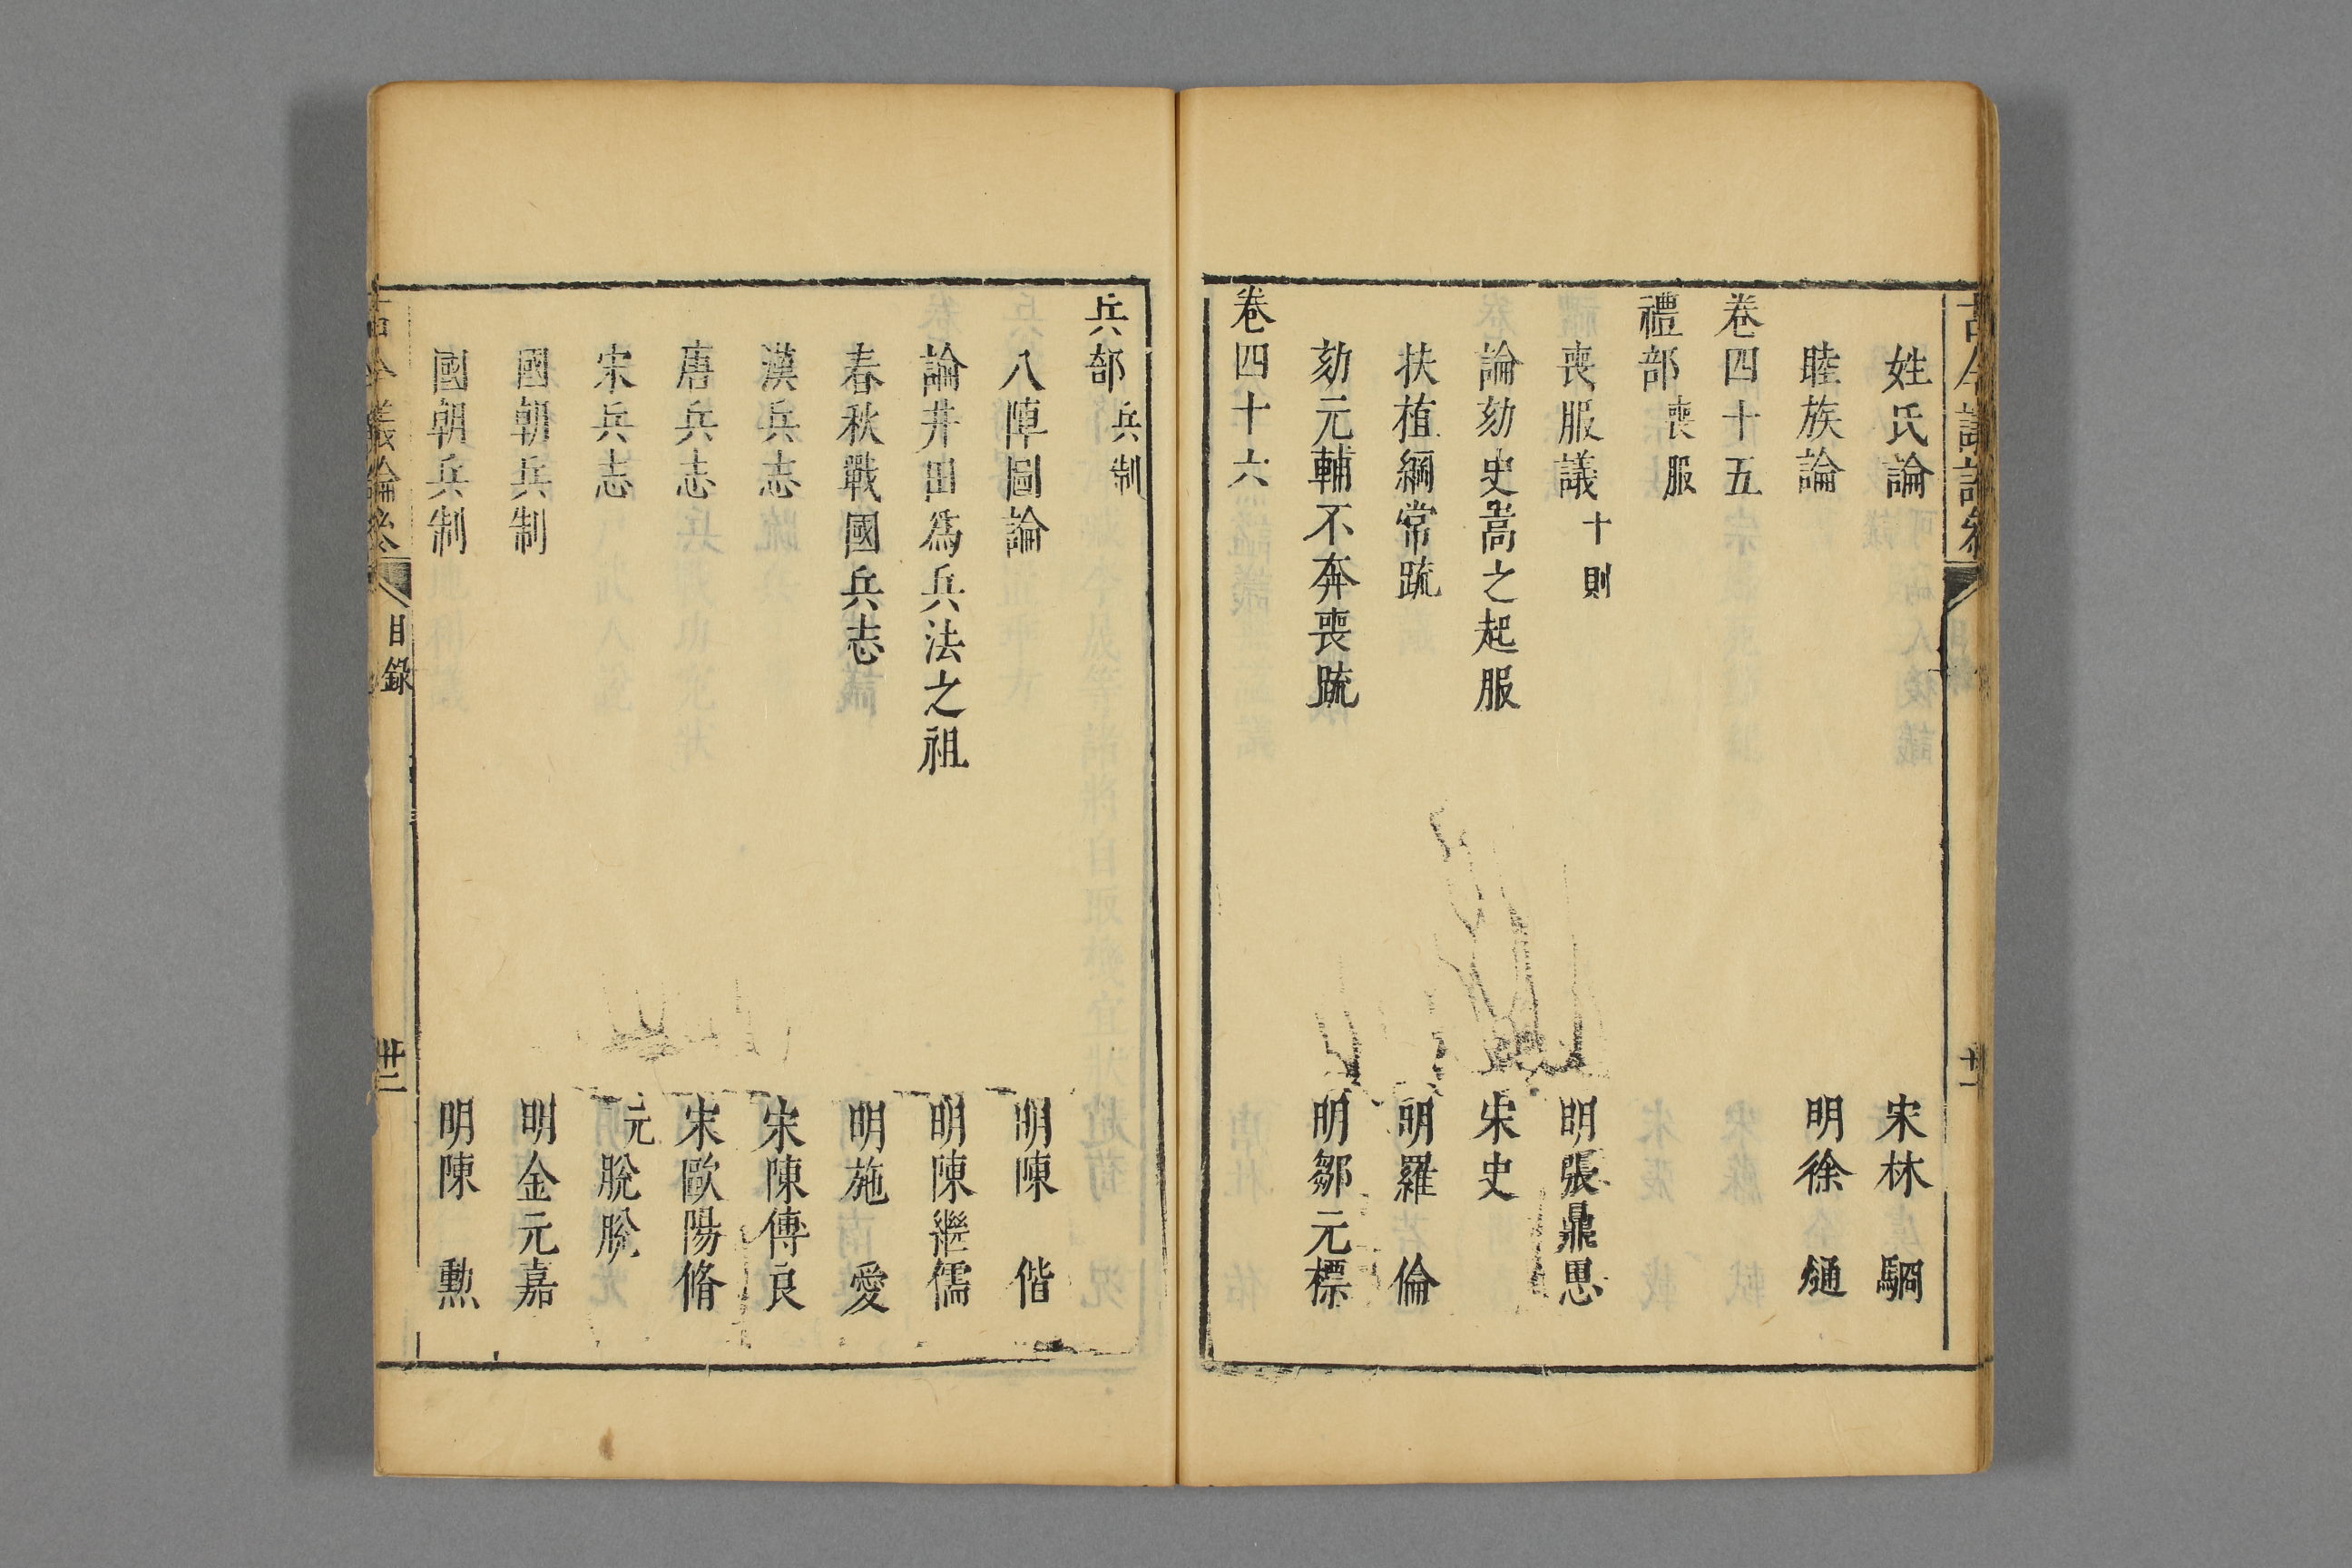 姓氏論 宋林駉
睦族論 明徐𤐫
卷四十五
禮部 喪服
喪服議 十則 明張鼎思
論劾史嵩之起服 宋史
扶植綱常疏 明羅倫
劾元輔不奔喪疏 明鄒元標
卷四十六
兵部 兵制
八陣圖論 明陳偕
論井田爲兵法之祖 明陳繼儒
春秋戰國兵志 明施愛
漢兵志 宋陳傅良
唐兵志 宋歐陽脩
宋兵志 元脫脫
國朝兵制 明金元嘉
國朝兵制 明陳勲
古今議論參
目錄
卅二